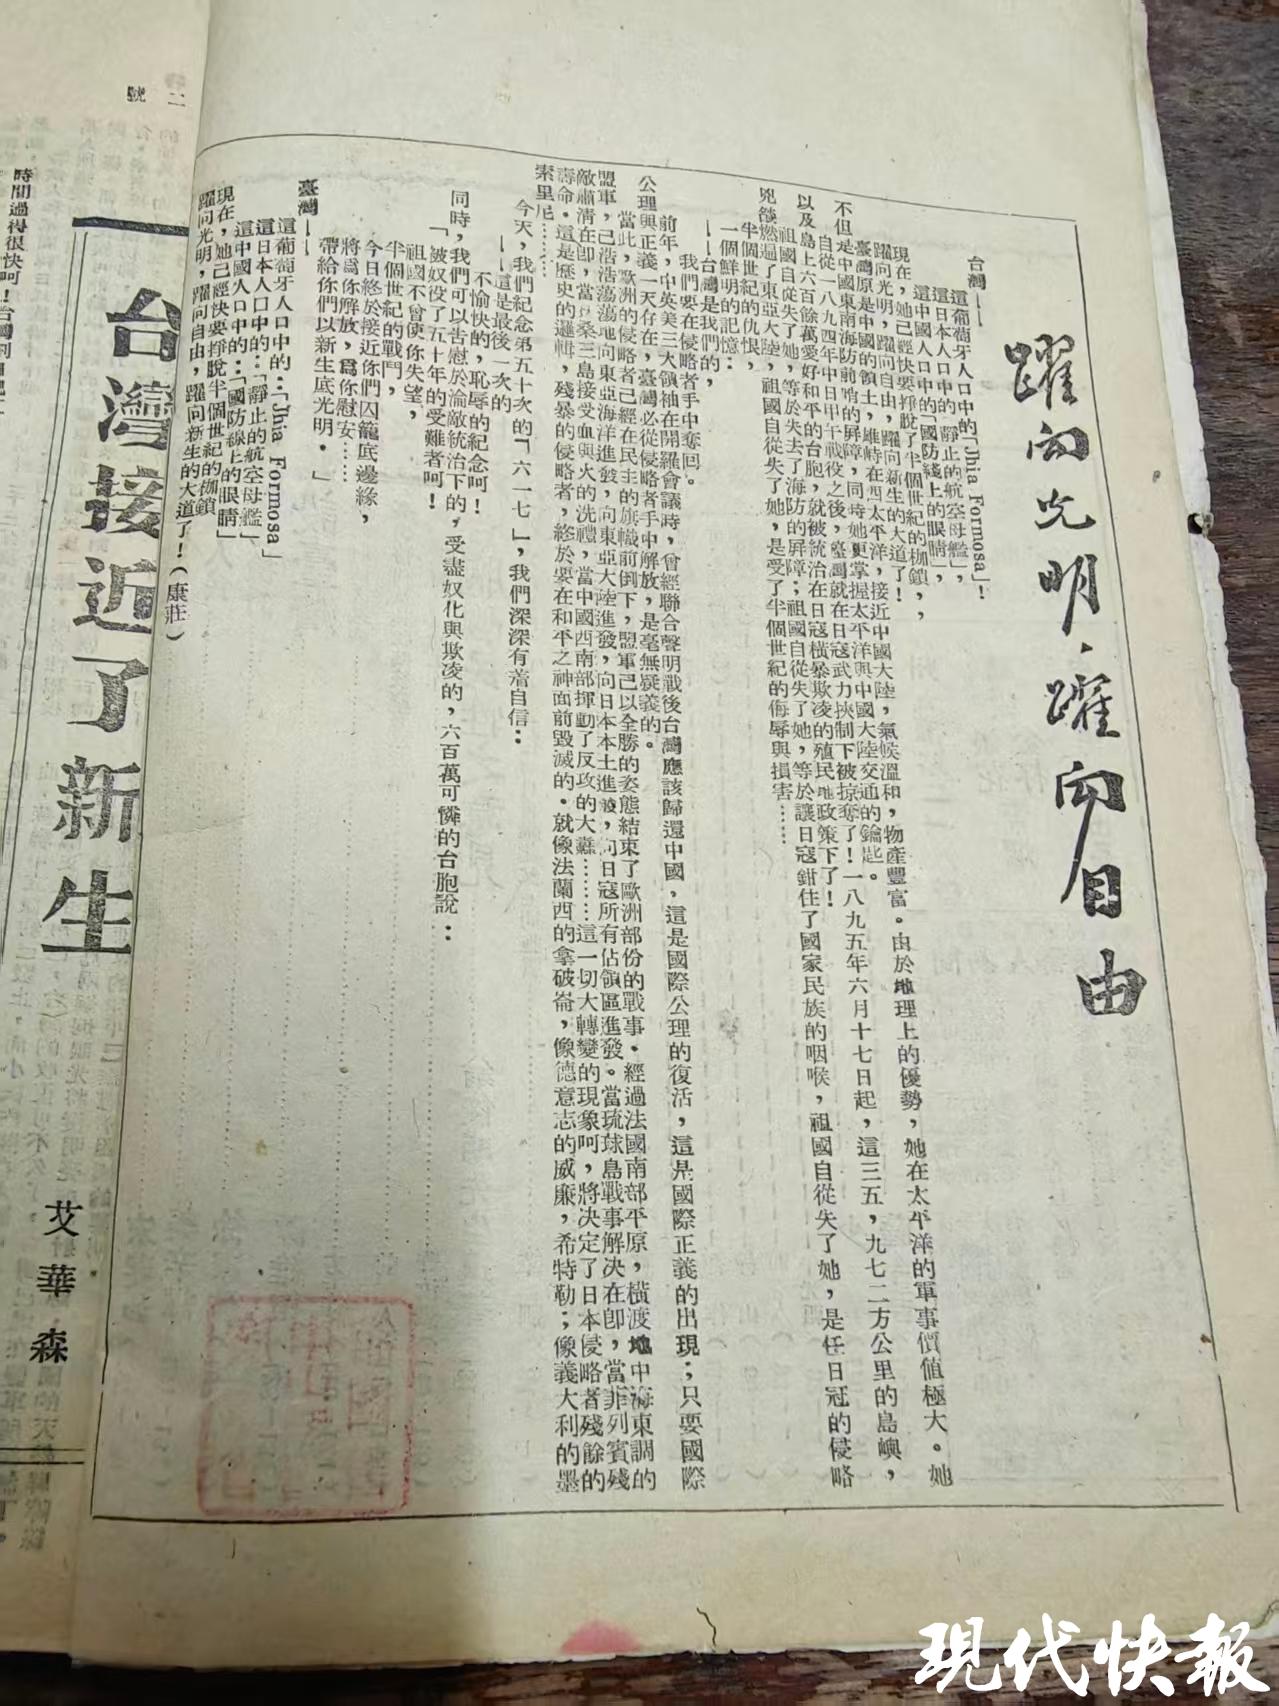 躍向光明，躍向自由
台灣——
這葡萄牙人口中的「Jhia Formosa」！
這日本人口中的「靜止的航空母艦」，
這中國人口中的「國防綫上的眼睛」，
現在，她已經快要掙脫了半個世紀的枷鎖，
躍向光明，躍向自由，躍向新生的大道了！
臺灣原是中國的領土，雄峙在西太平洋，接近中國大陸，氣候溫和，物產豐富。由於地理上的優勢，她在太平洋的軍事價值極大。她
不但是中國東南海防前哨的屏障，同時她更掌握太平洋與中國大陸交通的鑰匙。
自從一八九四年中日甲午戰役之後，臺灣就在日寇武力挾制下被掠奪了！一八九五年六月十七日起，這三五，九七二方公里的島嶼，
以及島上六百餘萬愛好和平的台胞，就被統治在日寇橫暴欺凌的殖民地政策下了！
祖國自從失了她，等於失去了海防的屏障；祖國自從失了她，等於讓日寇鉗住了國家民族的咽喉，祖國自從失了她，是任日冠的侵略
兇燄燃遍了東亞大陸，祖國自從失了她，是受了半個世紀的侮辱與損害……
半個世紀的仇恨，
一個鮮明的記憶：
——台灣是我們的，
我們要在侵略者手中奪回。
前年，中英美三大領袖在開羅會議時，曾經聯合聲明戰後台灣應該歸還中國，這是國際公理的復活，這是國際正義的出現；只要國際
公理與正義一天存在，臺灣必從侵略者手中解放，是毫無疑義的。
當此，歐洲的侵略者已經在民主的旗幟前倒下，盟軍已以全勝的姿態結束了歐洲部份的戰事．經過法國南部平原，橫渡地中海東調的
盟軍，已浩浩蕩蕩地向東亞海洋進發，向東亞大陸進發，向日本本土進發，向日寇所有佔領區進發。當琉球島戰事解決在即，當菲列賓殘
敵肅清在即，當扶桑三島接受血與火的洗禮，當中國西南部揮動了反攻的大纛………這一切大轉變的現象呵，將決定了日本侵略者殘餘的
壽命．這是歷史的邏輯，殘暴的侵略者，終於要在和平之神面前毀滅的．就像法蘭西的拿破崙，像德意志的威廉，希特勒；像義大利的墨
索里尼……
今天，我們紀念第五十次的「六一七」，我們深深有着自信：
——這是最後一次的
不愉快的，恥辱的紀念呵！
同時，我們可以告慰於淪敵統治下的，受盡奴化與欺凌的，六百萬可憐的台胞說：
「被奴役了五十年的受難者呵！
祖國不會使你失望，
半個世紀的戰鬥，
今日終於接近你們囚籠底邊緣，
將爲你解放，爲你慰安……
帶給你們以新生底光明．」
臺灣——
這葡萄牙人口中的：「Jhia Formosa」
這日本人口中的：「靜止的航空母艦」
這中國人口中的：「國防線上的眼睛」
現在，她已經快要掙脫半個世紀的枷鎖
躍向光明，躍向自由，躍向新生的大道了！（康莊）
二
號
台灣接近了新生
艾華森
時間過得很快呵！
現代快報